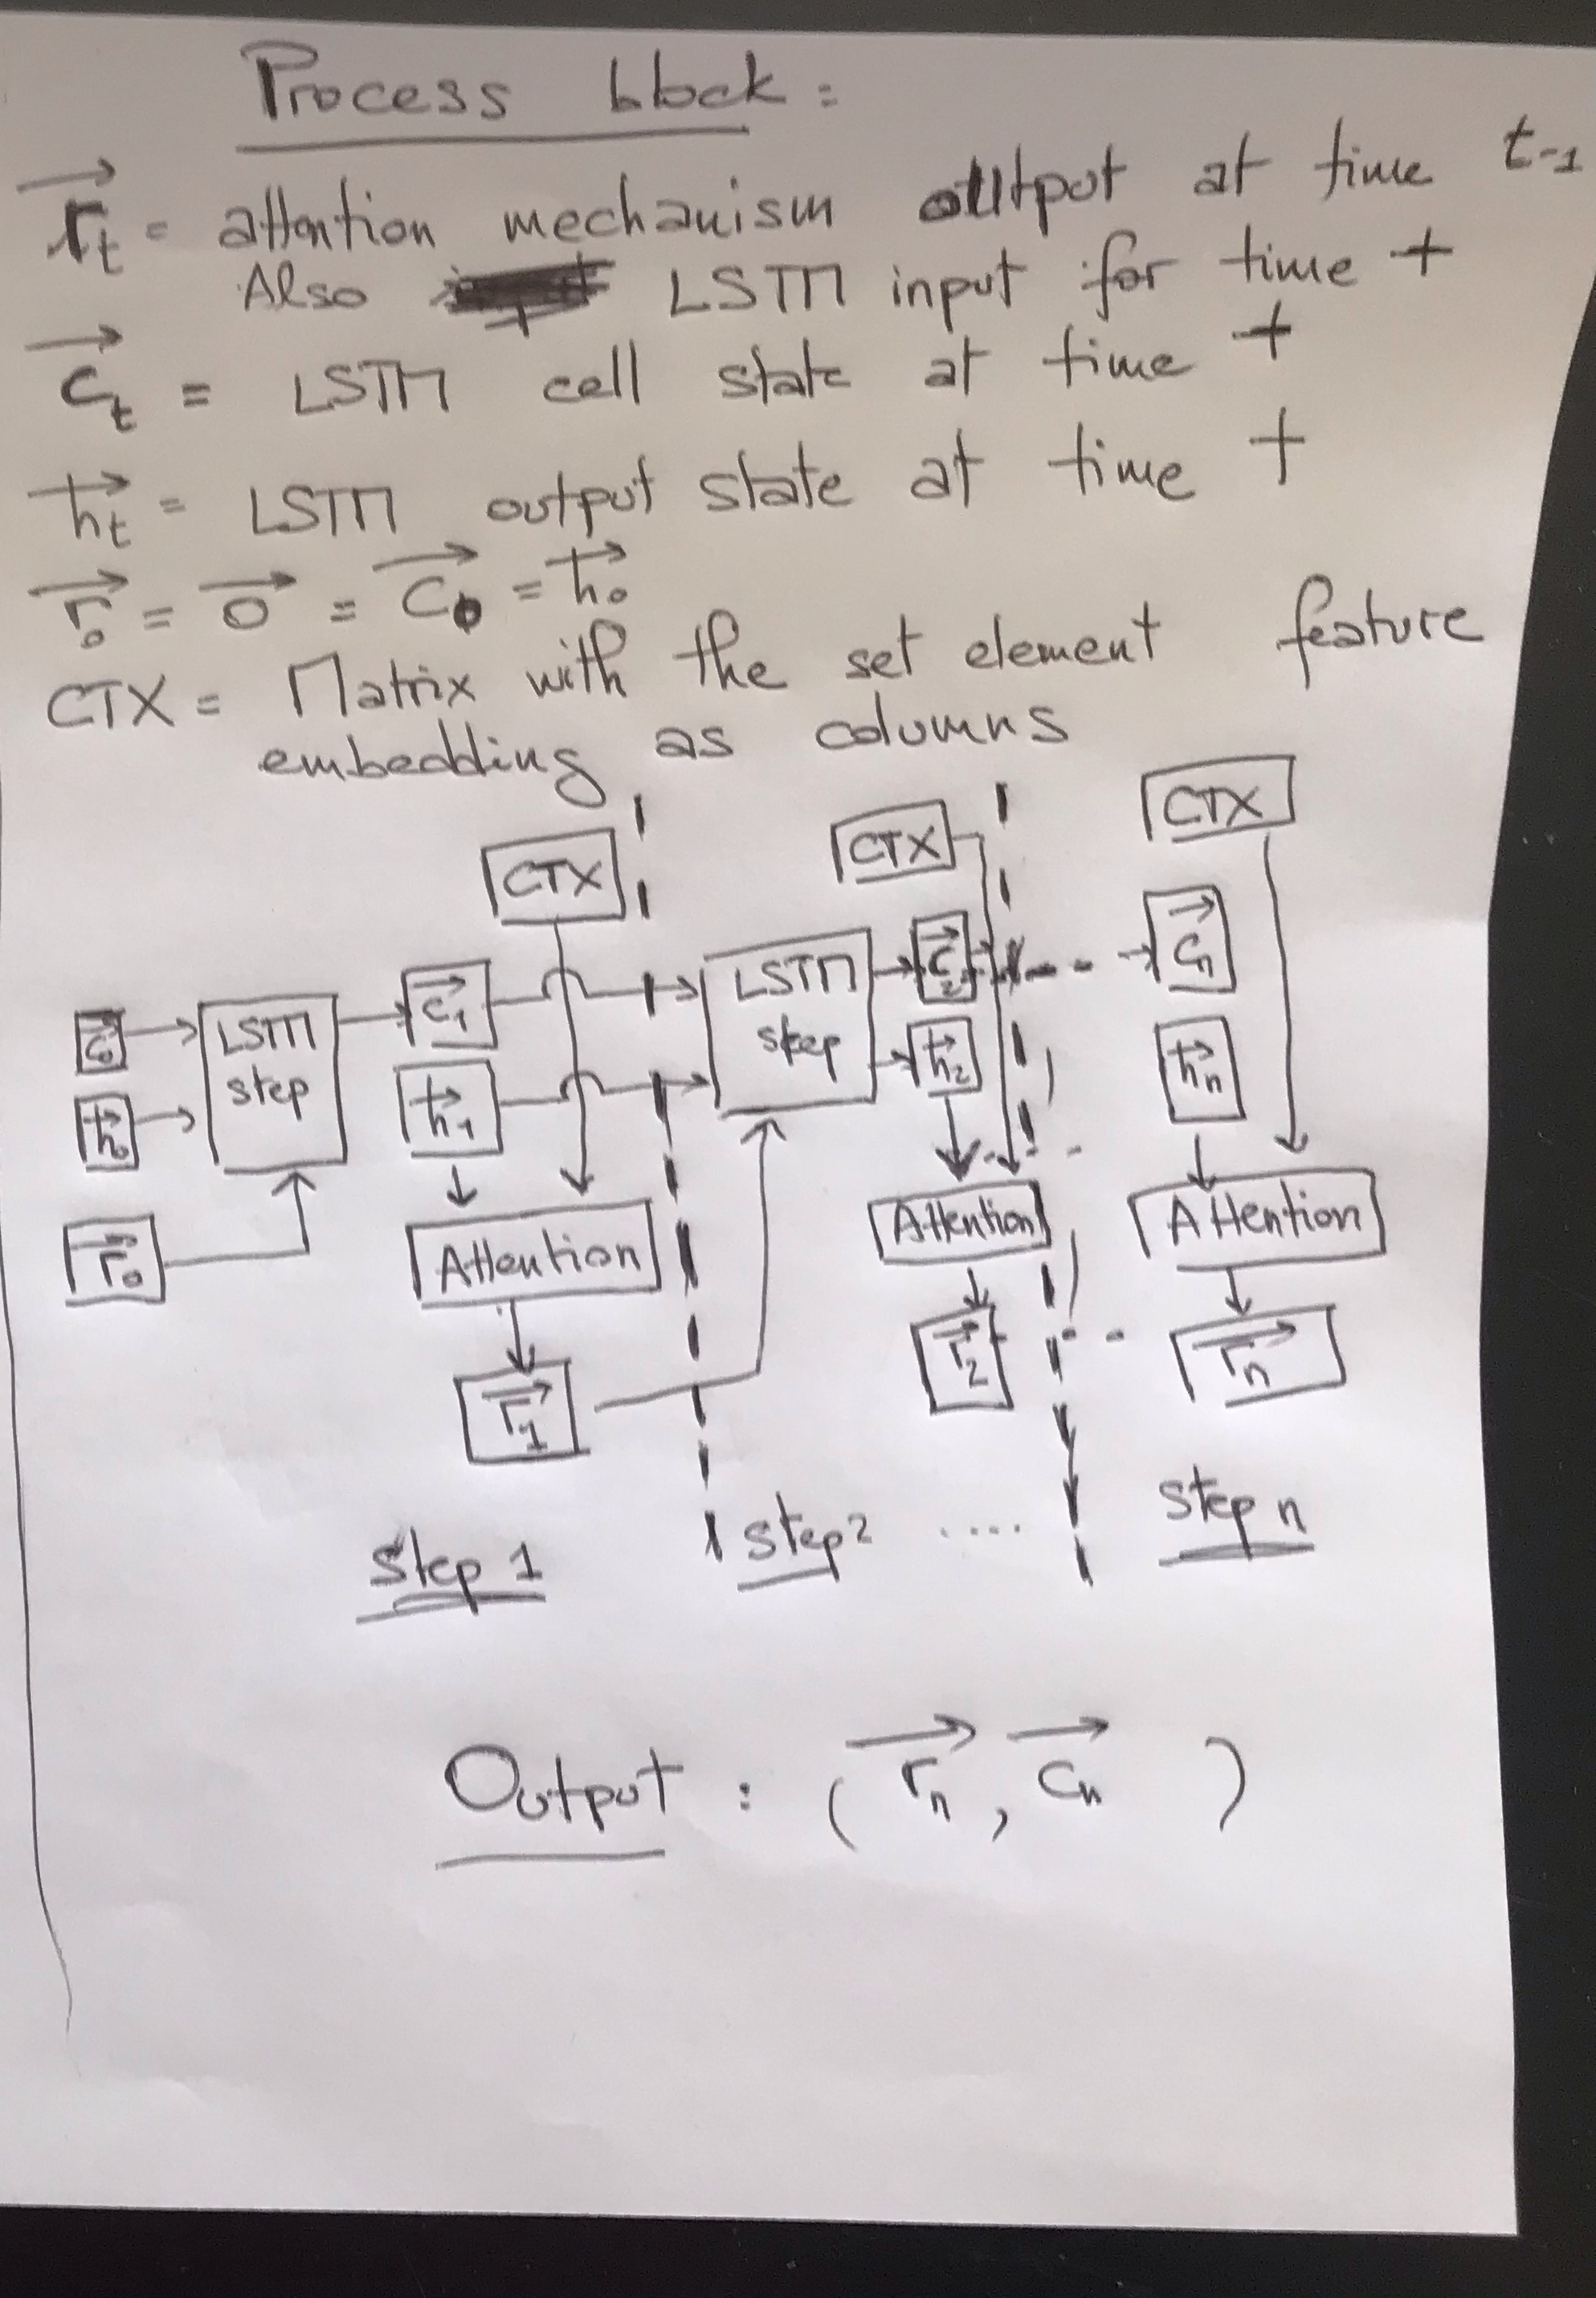 Process block :
r⃗t = attention mechanism output at time t-1
Also LSTM input for time t
c⃗t = LSTM cell state at time t
h⃗t = LSTM output state at time t
r⃗0 = 0⃗ = c⃗0 = h⃗0
CTX = Matrix with the set element feature
embedding as columns
CTX
CTX
CTX
c⃗0
h⃗0
r⃗0
LSTM
step
c⃗1
h⃗1
Attention
r⃗1
LSTM
step
c⃗2
h⃗2
Attention
r⃗2
c⃗n
h⃗n
Attention
r⃗n
Step 1
Step 2 ....
Step n
Output : (r⃗n, c⃗n )